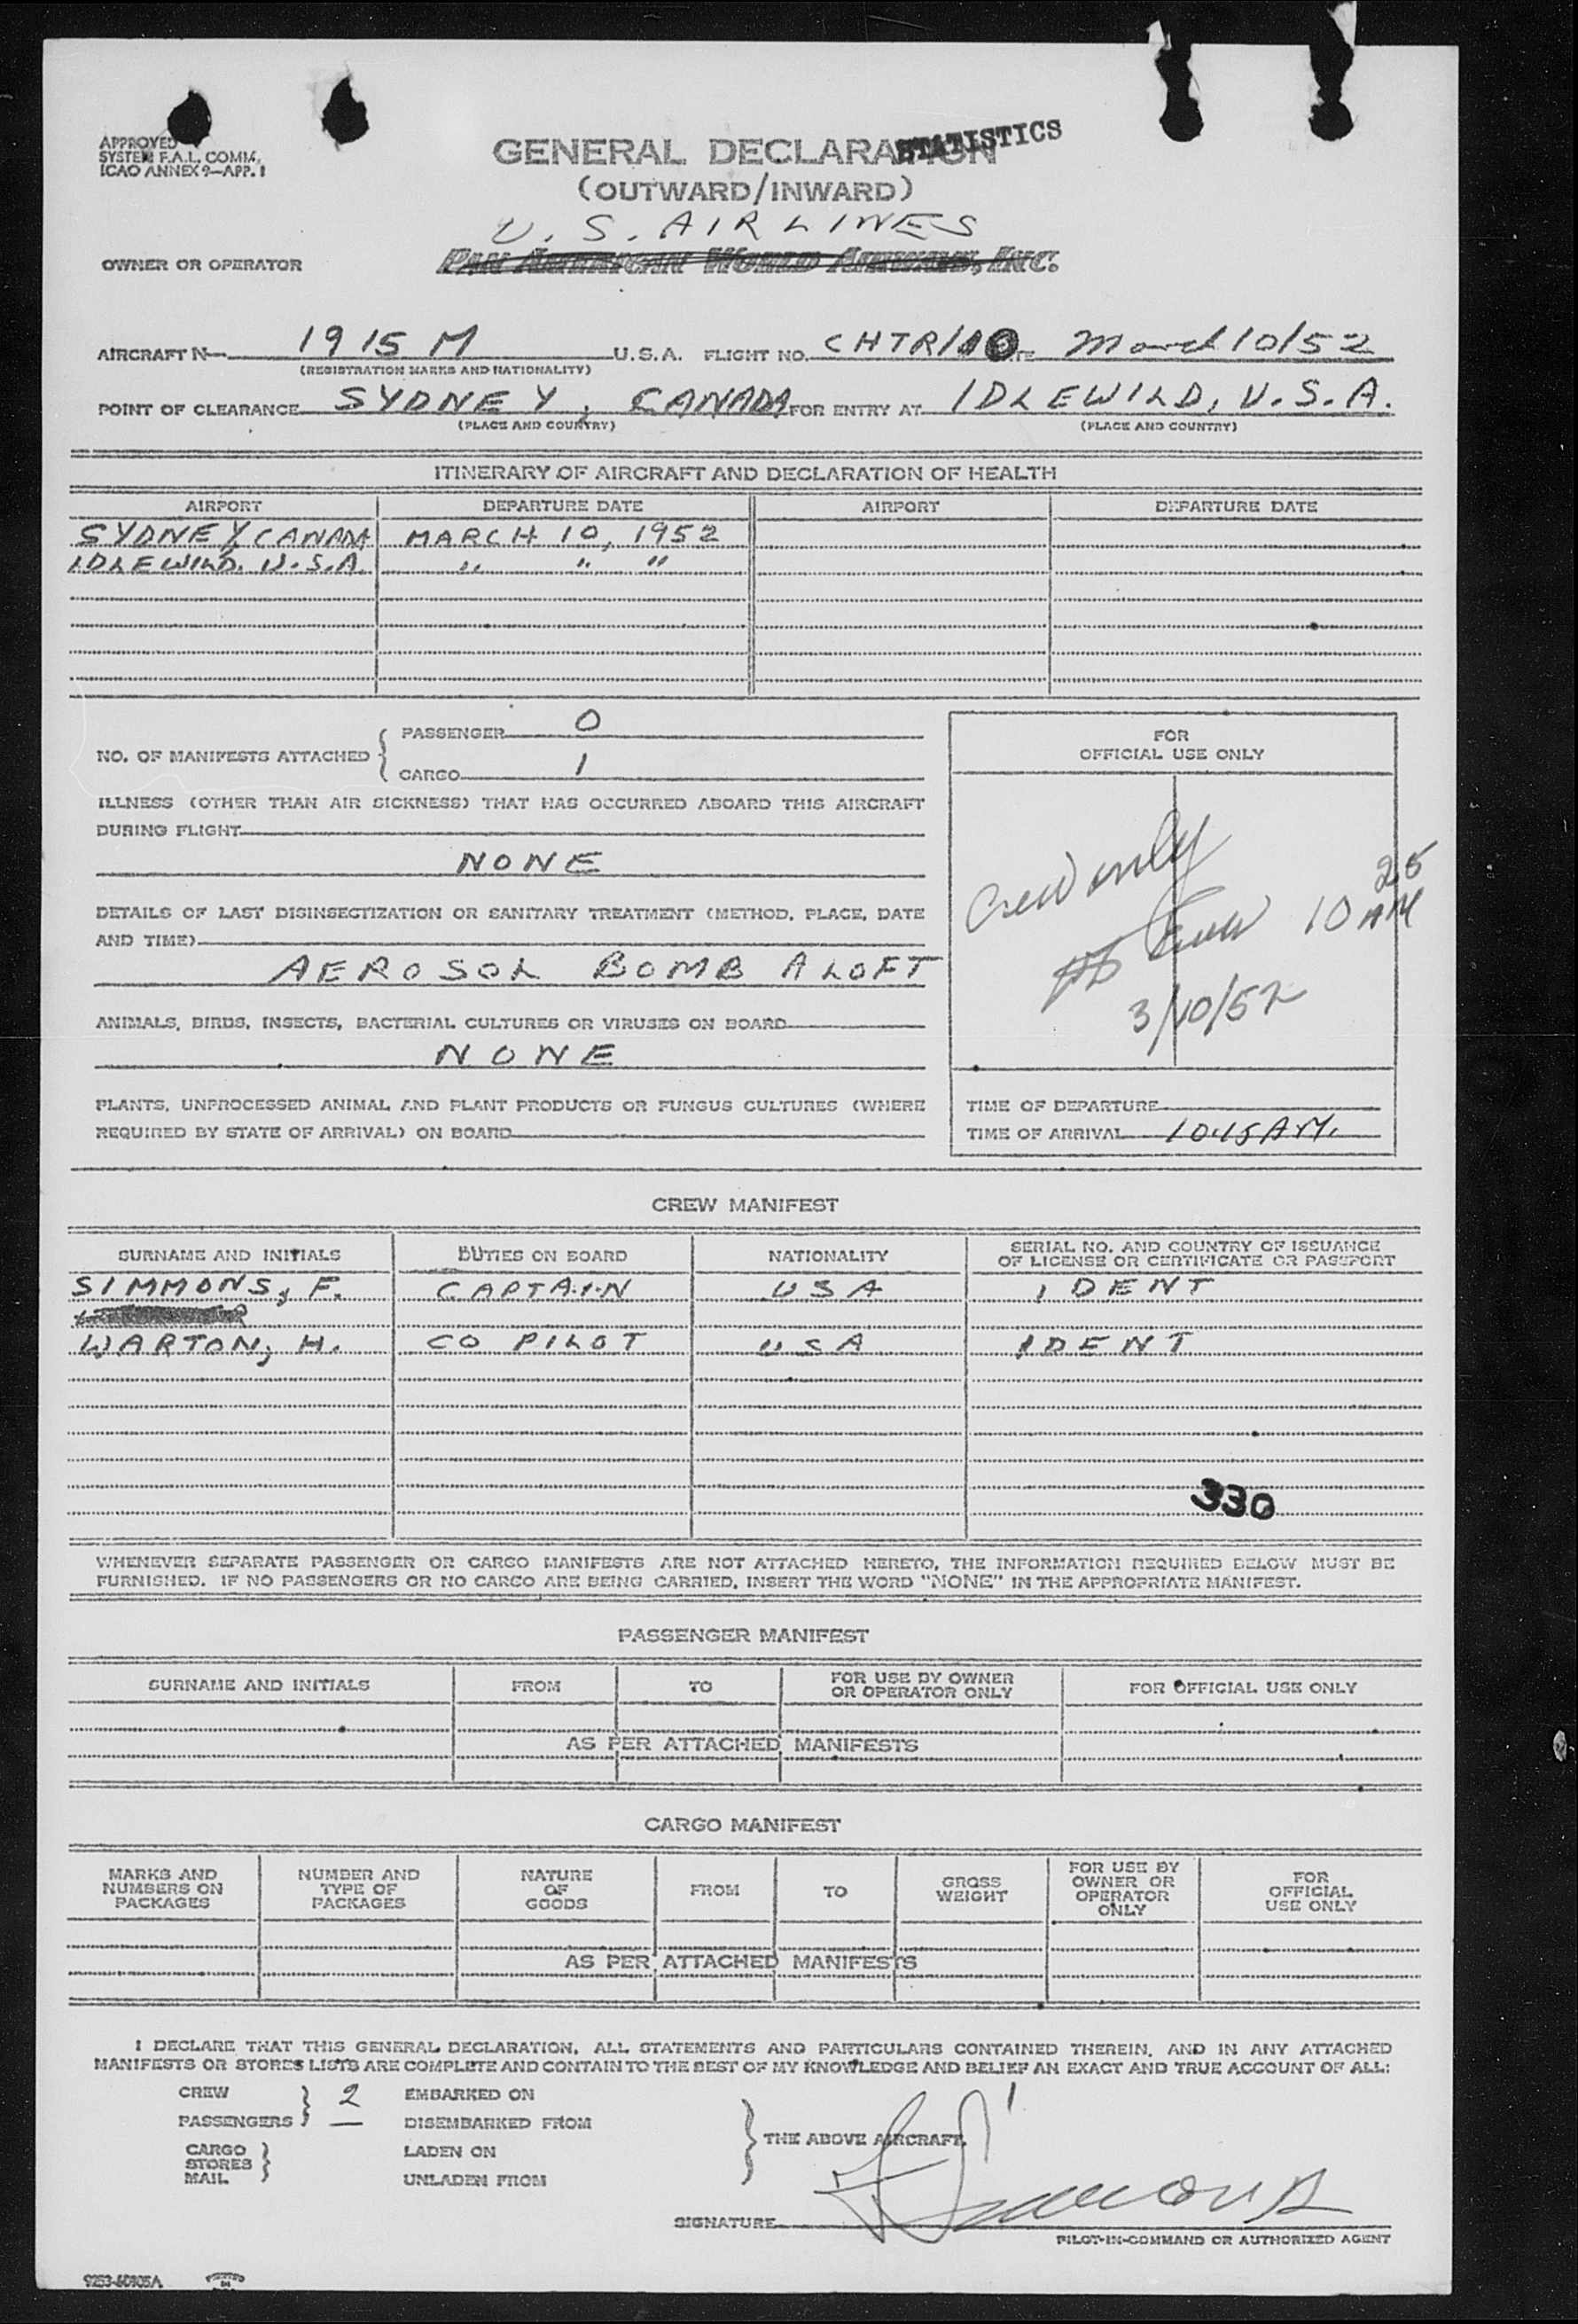 APPROVED
SYSTEM F.A.L. COMM.
ICAO ANNEX 9—APP. 1
GENERAL DECLARATION
STATISTICS
(OUTWARD/INWARD)
U.S. AIRLINES
OWNER OR OPERATOR PAN AMERICAN WORLD AIRWAYS, INC.
AIRCRAFT N— 1915 M U.S.A. FLIGHT NO. CHTR/ March 10/52
(REGISTRATION MARKS AND NATIONALITY)
POINT OF CLEARANCE SYDNEY, CANADA FOR ENTRY AT IDLEWILD, U.S.A.
(PLACE AND COUNTRY) (PLACE AND COUNTRY)
ITINERARY OF AIRCRAFT AND DECLARATION OF HEALTH
AIRPORT DEPARTURE DATE AIRPORT DEPARTURE DATE
SYDNEY, CANADA MARCH 10, 1952
IDLEWILD. U.S.A. " " "
NO. OF MANIFESTS ATTACHED { PASSENGER 0
CARGO 1
ILLNESS (OTHER THAN AIR SICKNESS) THAT HAS OCCURRED ABOARD THIS AIRCRAFT
DURING FLIGHT
NONE
DETAILS OF LAST DISINSECTIZATION OR SANITARY TREATMENT (METHOD, PLACE, DATE
AND TIME)
AEROSOL BOMB ALOFT
ANIMALS, BIRDS, INSECTS, BACTERIAL CULTURES OR VIRUSES ON BOARD
NONE
PLANTS, UNPROCESSED ANIMAL AND PLANT PRODUCTS OR FUNGUS CULTURES (WHERE
REQUIRED BY STATE OF ARRIVAL) ON BOARD
FOR
OFFICIAL USE ONLY
Crew only
10 25 AM
3/10/52
TIME OF DEPARTURE
TIME OF ARRIVAL 10:15 A.M.
CREW MANIFEST
SURNAME AND INITIALS DUTIES ON BOARD NATIONALITY SERIAL NO. AND COUNTRY OF ISSUANCE
OF LICENSE OR CERTIFICATE OR PASSPORT
SIMMONS, F. CAPTAIN USA IDENT
WARTON, H. CO PILOT USA IDENT
330
WHENEVER SEPARATE PASSENGER OR CARGO MANIFESTS ARE NOT ATTACHED HERETO, THE INFORMATION REQUIRED BELOW MUST BE
FURNISHED. IF NO PASSENGERS OR NO CARGO ARE BEING CARRIED, INSERT THE WORD "NONE" IN THE APPROPRIATE MANIFEST.
PASSENGER MANIFEST
SURNAME AND INITIALS FROM TO FOR USE BY OWNER
OR OPERATOR ONLY FOR OFFICIAL USE ONLY
AS PER ATTACHED MANIFESTS
CARGO MANIFEST
MARKS AND
NUMBERS ON
PACKAGES
NUMBER AND
TYPE OF
PACKAGES
NATURE
OF
GOODS
FROM
TO
GROSS
WEIGHT
FOR USE BY
OWNER OR
OPERATOR
ONLY
FOR
OFFICIAL
USE ONLY
AS PER ATTACHED MANIFESTS
I DECLARE THAT THIS GENERAL DECLARATION, ALL STATEMENTS AND PARTICULARS CONTAINED THEREIN, AND IN ANY ATTACHED
MANIFESTS OR STORES LISTS ARE COMPLETE AND CONTAIN TO THE BEST OF MY KNOWLEDGE AND BELIEF AN EXACT AND TRUE ACCOUNT OF ALL:
CREW } 2 EMBARKED ON
PASSENGERS — DISEMBARKED FROM
CARGO LADEN ON
STORES
MAIL UNLADEN FROM
THE ABOVE AIRCRAFT.
SIGNATURE F Simmons
PILOT-IN-COMMAND OR AUTHORIZED AGENT